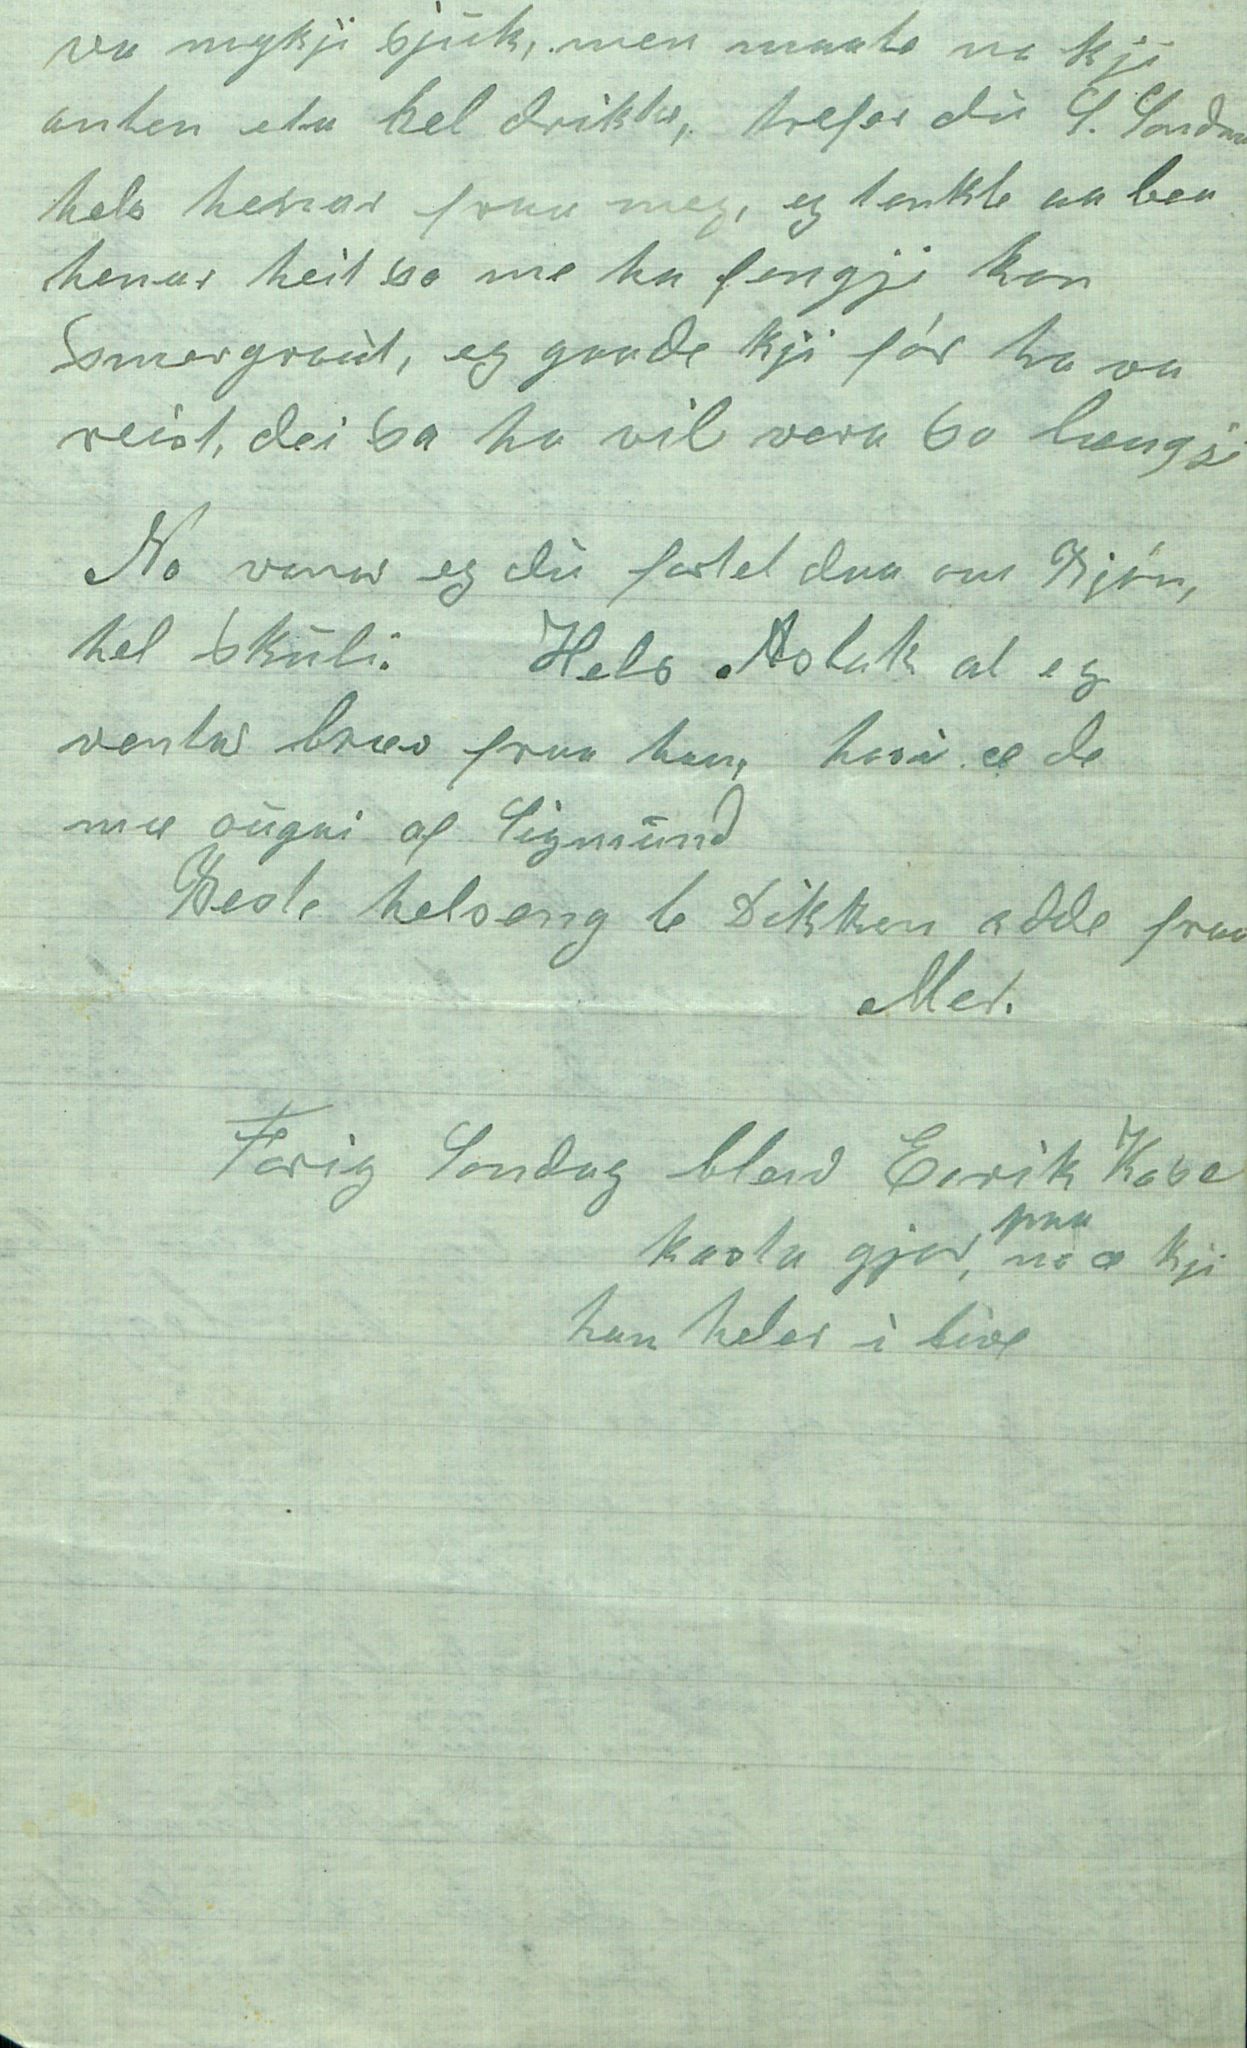 va mykji sjūk, men maate no kji
anten eta hel drikka, trefer dū S. Sondre
hels henar fraa meg, eg tenkte aa bea
henar heit so me ha fengji kon
Smergraūt, eg gaade kji fór ha va
reist, dei sa ha vil vera so længji
No vonar eg dū fortel daa om Bjón,
hel skūli. Hels Aslak at eg
ventar bræv fraa han, hosū æ de
mæ oūgai af Sigmūnd
Beste helseng te Dikkan adde fraa
Mer.
Forig Sondag blei Eivrik Kose
kasta gjor, paa no æ kji
han heler i live